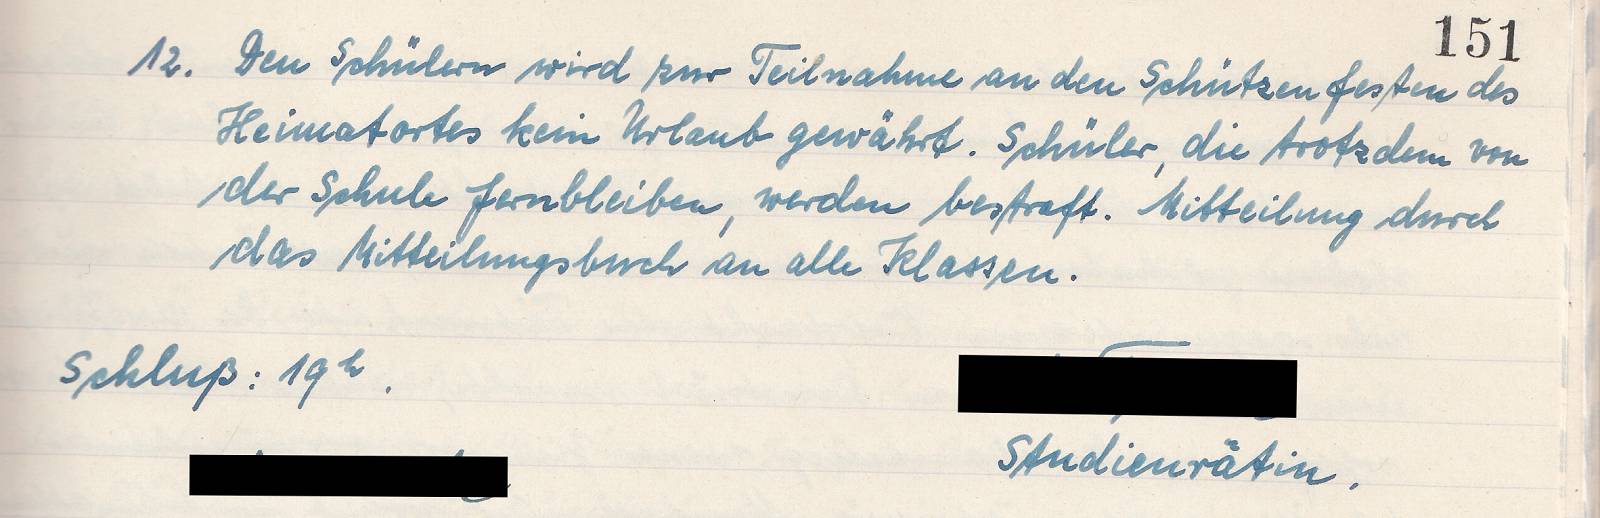 151
12. Den Schülern wird zur Teilnahme an den Schützenfesten des
Heimatortes kein Urlaub gewährt. Schüler, die trotzdem von
der Schule fernbleiben, werden bestraft. Mitteilung durch
das Mitteilungsbuch an alle Klassen.
Schluß: 19h.
Studienrätin.